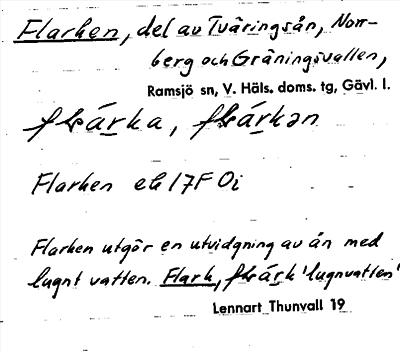 Flarken, del av Tväringsån, Norr-
berg och Gräningsvallen,
Ramsjö sn, V. Häls. doms. tg, Gävl. l.
flärka, flärkən
Flarken ek 17F 0i
Flarken utgör en utvidgning av ån med
lugnt vatten. Flark, flärk 'lugnvatten'
Lennart Thunvall 19